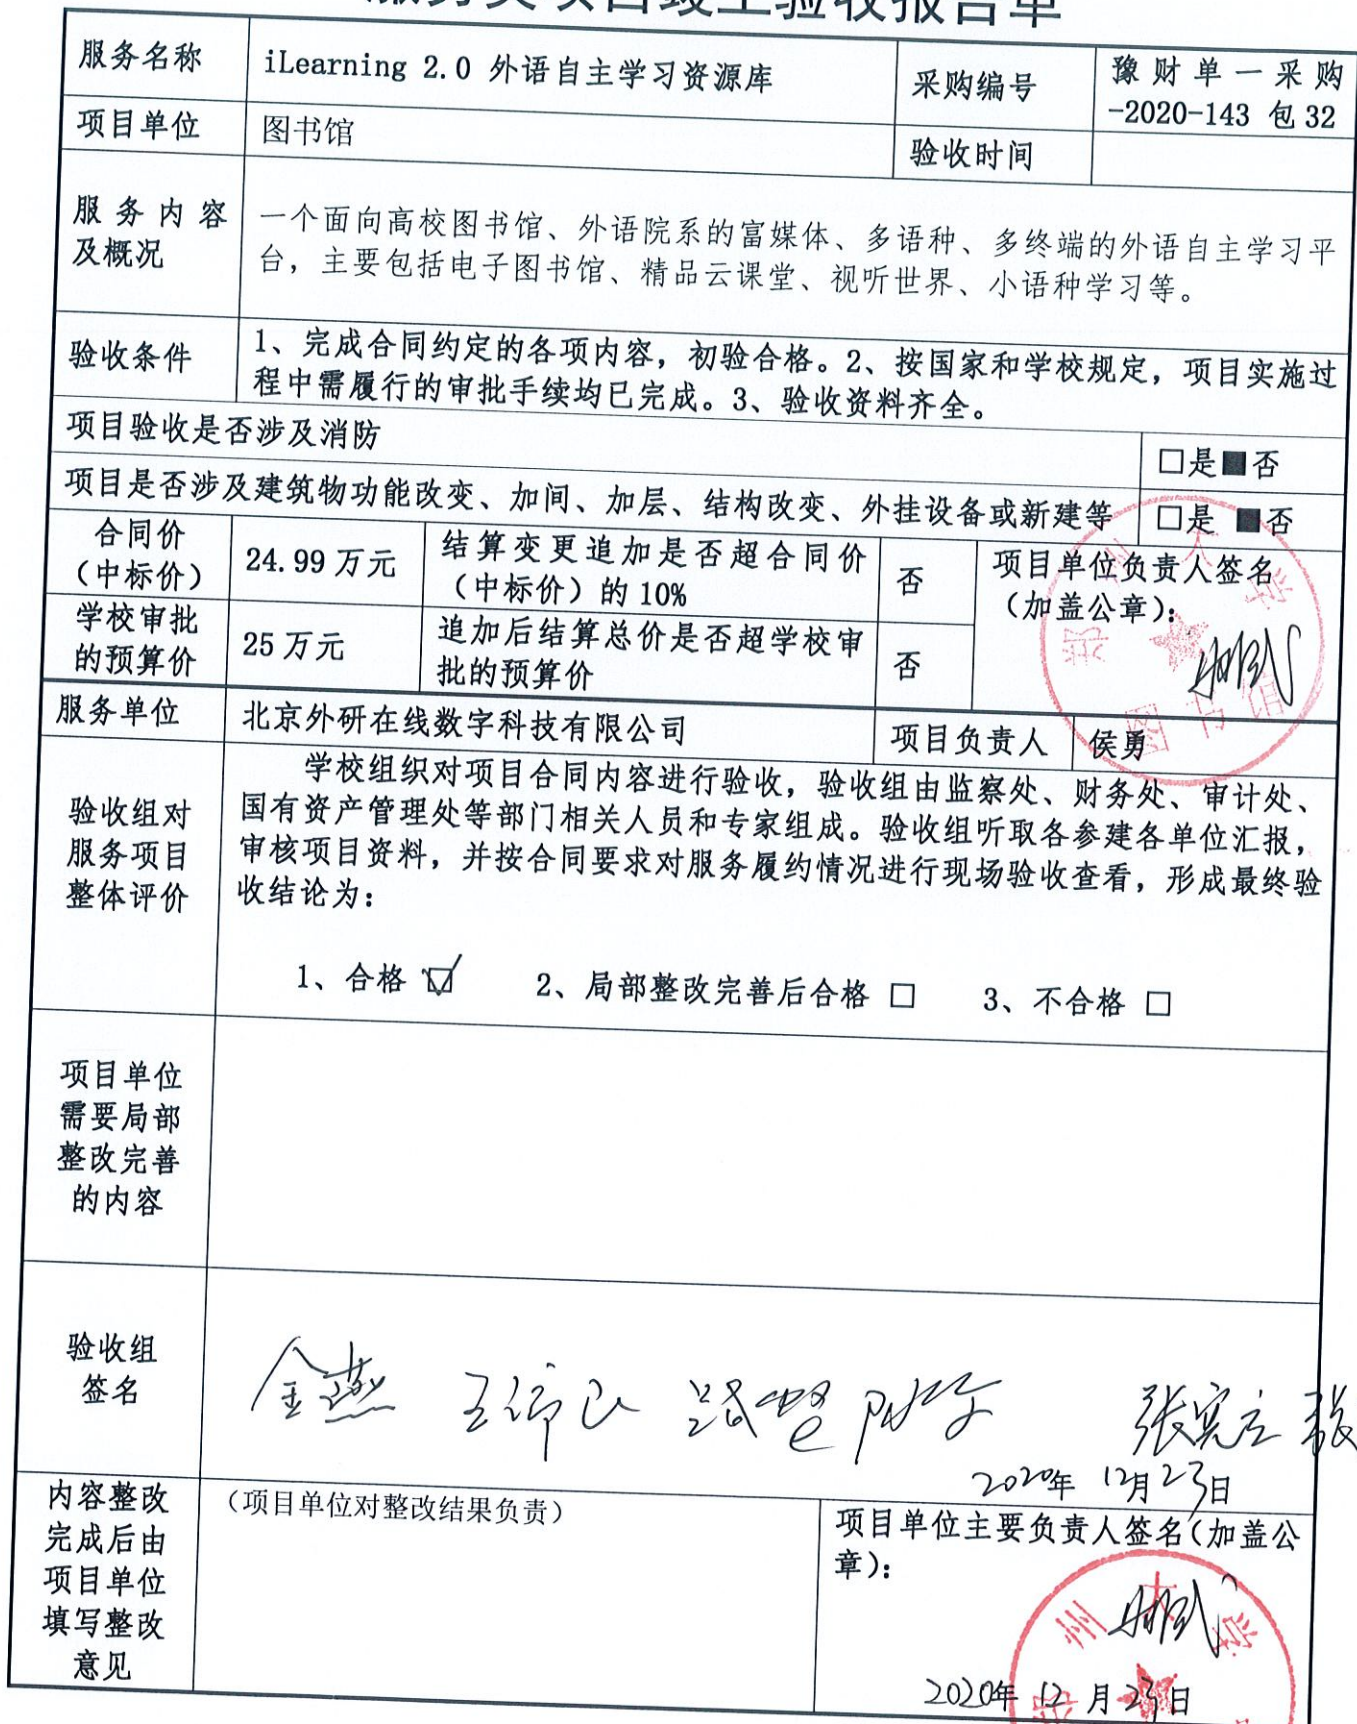 服务类项目竣工验收报告单
服务名称
iLearning 2.0 外语自主学习资源库
采购编号
豫财单一采购
-2020-143 包 32
项目单位
图书馆
验收时间
服务内容
及概况
一个面向高校图书馆、外语院系的富媒体、多语种、多终端的外语自主学习平
台，主要包括电子图书馆、精品云课堂、视听世界、小语种学习等。
验收条件
1、完成合同约定的各项内容，初验合格。2、按国家和学校规定，项目实施过
程中需履行的审批手续均已完成。3、验收资料齐全。
项目验收是否涉及消防
□是■否
项目是否涉及建筑物功能改变、加间、加层、结构改变、外挂设备或新建等
□是 ■否
合同价
（中标价）
24.99 万元
结算变更追加是否超合同价
（中标价）的 10%
否
项目单位负责人签名
（加盖公章）：
学校审批
的预算价
25 万元
追加后结算总价是否超学校审
批的预算价
否
服务单位
北京外研在线数字科技有限公司
项目负责人
侯勇
验收组对
服务项目
整体评价
学校组织对项目合同内容进行验收，验收组由监察处、财务处、审计处、
国有资产管理处等部门相关人员和专家组成。验收组听取各参建各单位汇报，
审核项目资料，并按合同要求对服务履约情况进行现场验收查看，形成最终验
收结论为：
1、合格 ☑ 2、局部整改完善后合格 □ 3、不合格 □
项目单位
需要局部
整改完善
的内容
验收组
签名
金燕
张宪立 张
2020年 12月23日
内容整改
完成后由
项目单位
填写整改
意见
（项目单位对整改结果负责）
项目单位主要负责人签名（加盖公
章）：
州大学
2020年 12 月 23日